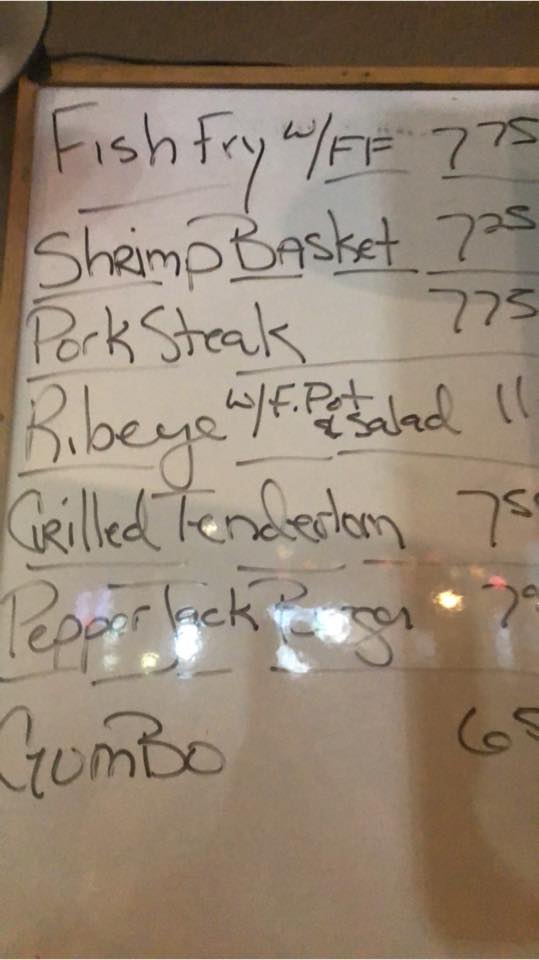 Fish Fry w/FF 775
Shrimp Basket 725
Pork Steak 775
Ribeye w/F. Pot & Salad 11
Grilled Tenderloin 75
Pepper Jack Burger 79
Gumbo 65